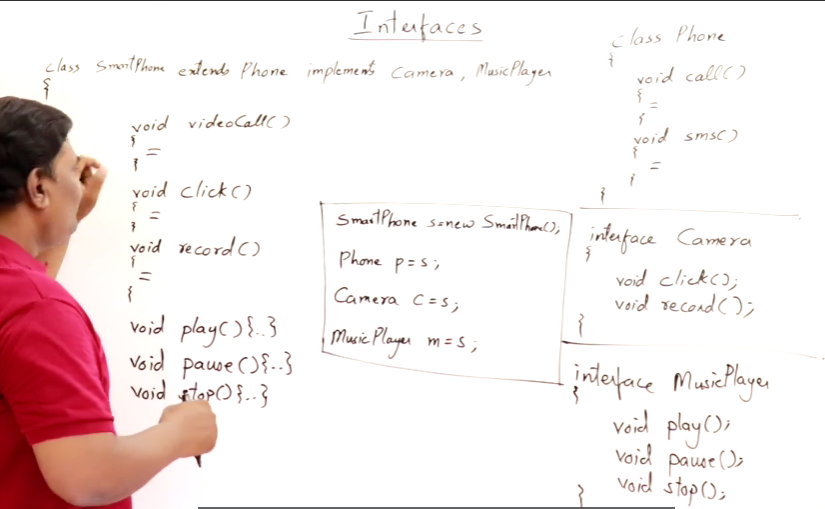 Interfaces
class SmartPhone extends Phone implements Camera, MusicPlayer
{
void videoCall()
{
=
}
void click()
{
=
}
void record()
{
=
}
void play(){..}
void pause(){..}
void stop(){..}
SmartPhone s=new SmartPhone();
Phone p=s;
Camera c=s;
MusicPlayer m=s;
class Phone
{
void call()
{
=
}
void sms()
{
=
}
}
interface Camera
{
void click();
void record();
}
interface MusicPlayer
{
void play();
void pause();
void stop();
}